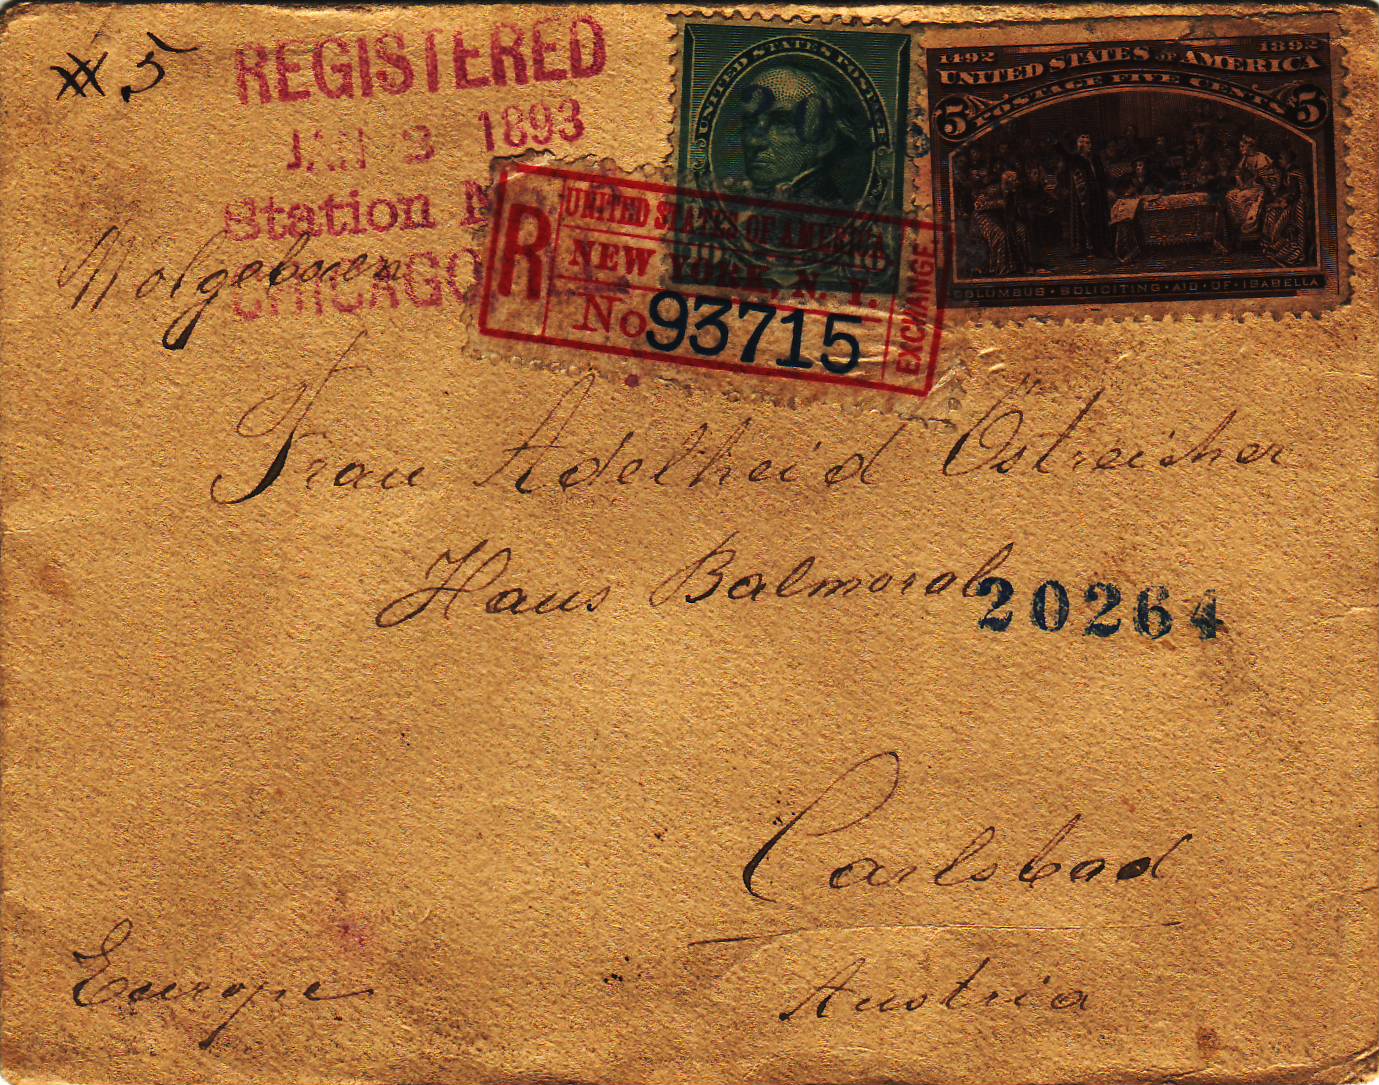 # 5
REGISTERED
JAN 3 1893
Station M
CHICAGO
UNITED STATES POSTAGE
1492 1892
UNITED STATES OF AMERICA
POSTAGE FIVE CENTS
5 5
COLUMBUS · SOLICITING · AID · OF · ISABELLA
R
UNITED STATES OF AMERICA
NEW YORK, N. Y.
No 93715
EXCHANGE
Wolgeboren
Frau Adelheid Östreicher
Haus Balmoral
20264
Carlsbad
Austria
Europe